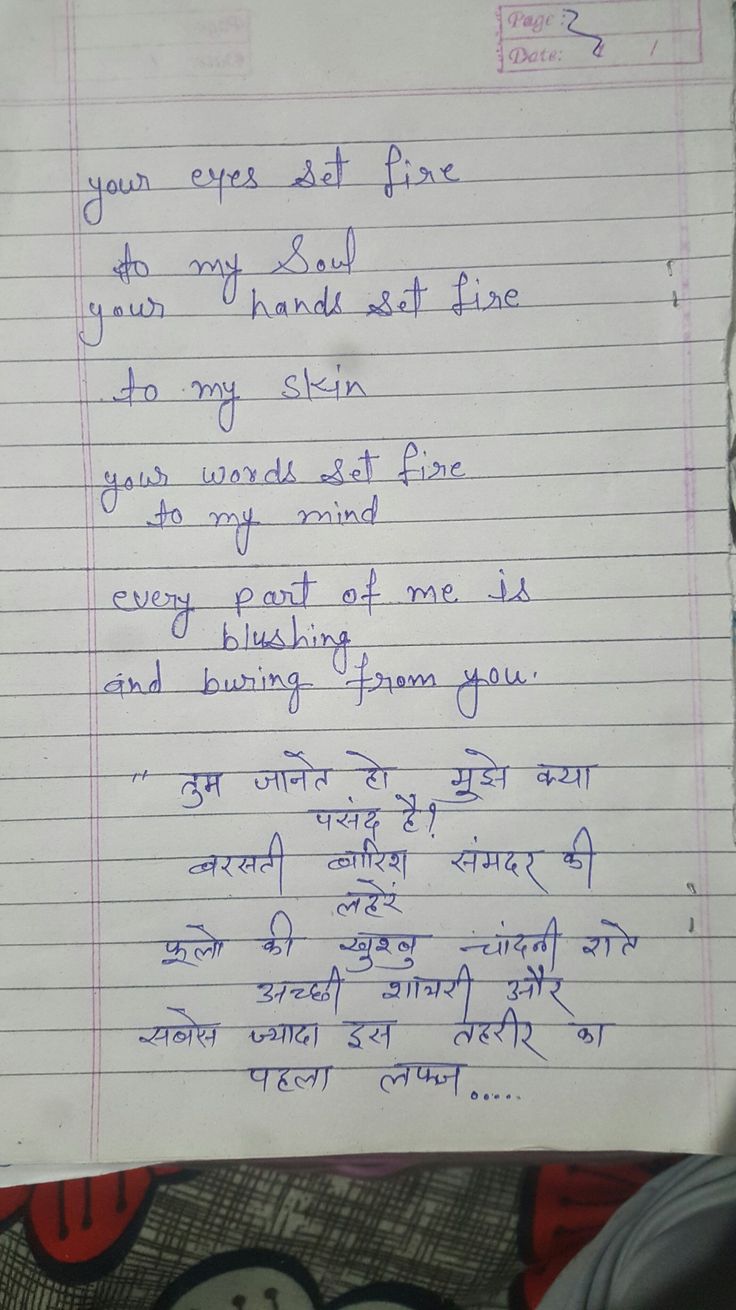 Page: 2
Date: / /
your eyes set fire
to my Soul
your hands set fire
to my skin
your words set fire
to my mind
every part of me is
blushing
and buring from you.
" तुम जानेत हो मुझे क्या
पसंद है?
बरसती बारिश संमदर की
लहरें
फूलो की खुश्बु चांदनी राते
अच्छी शायरी और
सबेस ज्यादा इस तहरीर का
पहला लफ्ज.....